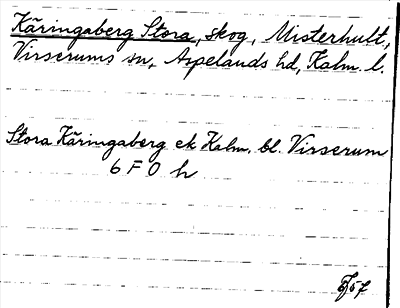 Käringaberg Stora, skog, Misterhult,,
Virserums sn, Aspelands hd, Kalm. l.
Stora Käringaberg ek Kalm. bl. Virserum
6 F 0 h